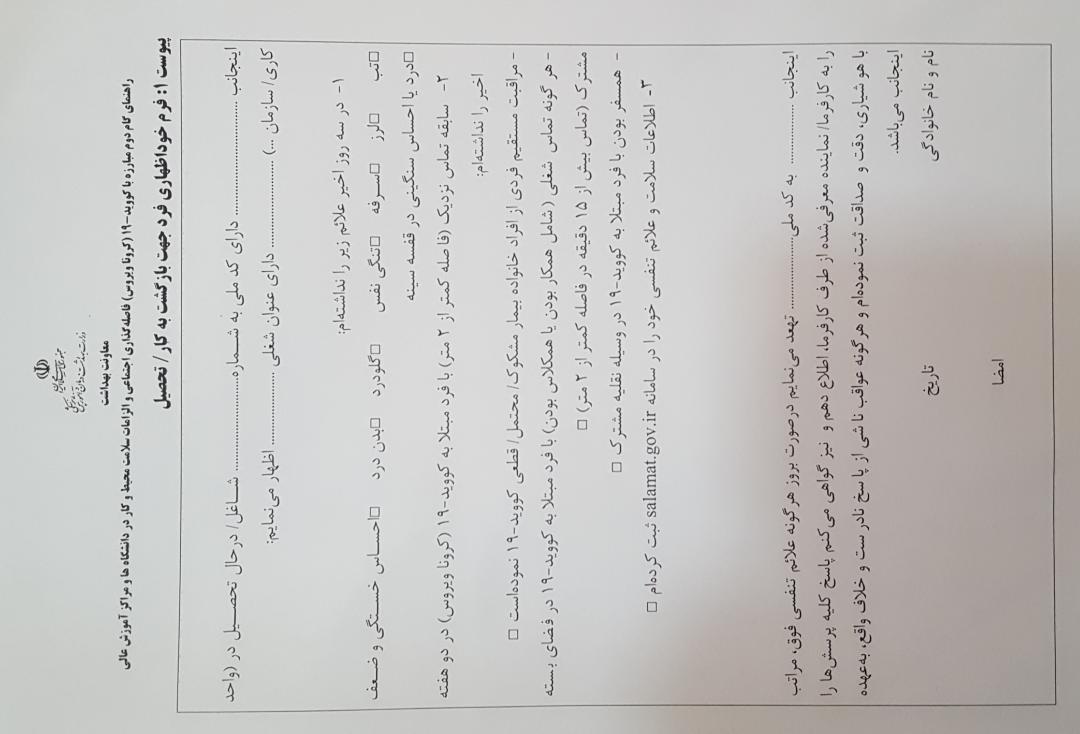 معاونت بهداشت
راهنمای گام دوم مبارزه با کووید-۱۹ (کرونا ویروس) فاصله گذاری اجتماعی و الزامات سلامت محیط و کار در دانشگاه ها و مراکز آموزش عالی
پیوست ۱: فرم خوداظهاری فرد جهت بازگشت به کار/ تحصیل
اینجانب ........................ دارای کد ملی به شماره........................ شاغل/ درحال تحصیل در (واحد
کاری/ سازمان ...) ........................ دارای عنوان شغلی ........................ اظهار می‌نمایم:
۱- در سه روز اخیر علائم زیر را نداشته‌ام:
□تب □لرز □سرفه □تنگی نفس □گلودرد □بدن درد □احساس خستگی و ضعف
□درد یا احساس سنگینی در قفسه سینه
۲- سابقه تماس نزدیک (فاصله کمتر از ۲ متر) با فرد مبتلا به کووید-۱۹ (کرونا ویروس) در دو هفته
اخیر را نداشته‌ام:
- مراقبت مستقیم فردی از افراد خانواده بیمار مشکوک/ محتمل/ قطعی کووید-۱۹ نموده‌است □
- هر گونه تماس شغلی (شامل همکار بودن یا همکلاس بودن) با فرد مبتلا به کووید-۱۹ در فضای بسته
مشترک (تماس بیش از ۱۵ دقیقه در فاصله کمتر از ۲ متر) □
- همسفر بودن با فرد مبتلا به کووید-۱۹ در وسیله نقلیه مشترک □
۳- اطلاعات سلامت و علائم تنفسی خود را در سامانه salamat.gov.ir ثبت کرده‌ام □
اینجانب ................ به کد ملی................ تهعد می‌نمایم درصورت بروز هرگونه علائم تنفسی فوق، مراتب
را به کارفرما/ نماینده معرفی‌شده از طرف کارفرما، اطلاع دهم و نیز گواهی می‌کنم پاسخ کلیه پرسش‌ها را
با هو شیاری، دقت و صداقت ثبت نموده‌ام و هرگونه عواقب نا شی از پا سخ نادر ست و خلاف واقع، به‌عهده
اینجانب می‌باشد.
نام و نام خانوادگی تاریخ
امضا